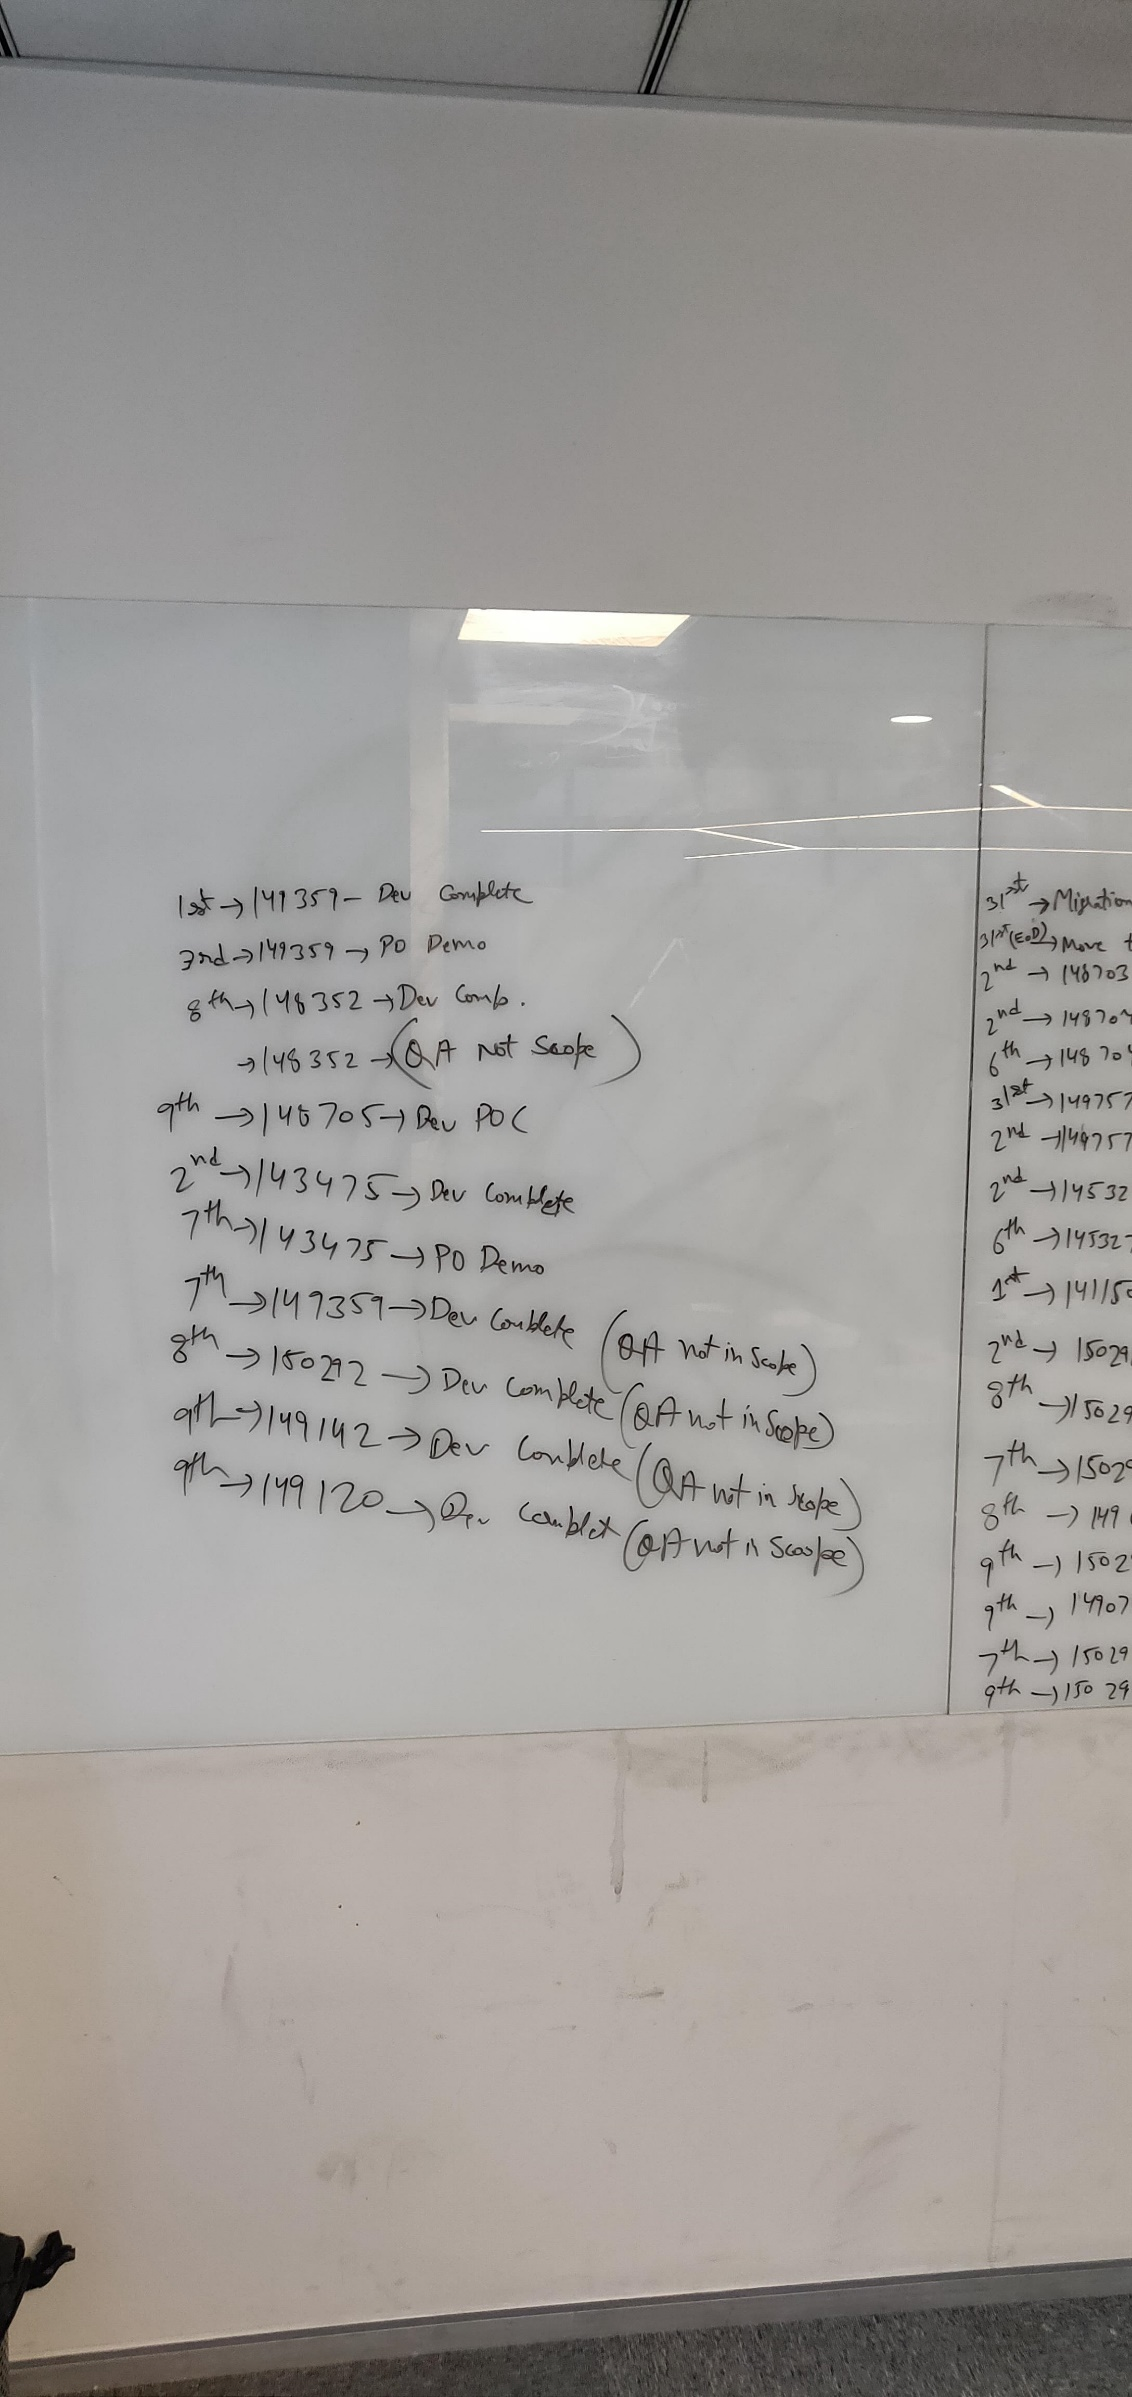 1st → 149359 - Dev Complete
3rd → 149359 → PO Demo
8th → 148352 → Dev Comp.
→ 148352 → (QA not Scope)
9th → 148705 → Dev POC
2nd → 143475 → Dev Complete
7th → 143475 → PO Demo
7th → 149359 → Dev Complete (QA not in Scope)
8th → 150292 → Dev Complete (QA not in Scope)
9th → 149142 → Dev Complete (QA not in Scope)
9th → 149120 → Dev Complet (QA not in Scoope)
31st → Migration
31st (EOD) → Move t
2nd → 148703
2nd → 148704
6th → 148704
31st → 149757
2nd → 149757
2nd → 14532
6th → 145327
1st → 141150
2nd → 15029
8th → 15029
7th → 15029
8th → 149
9th → 1502
9th → 14907
7th → 15029
9th → 15029